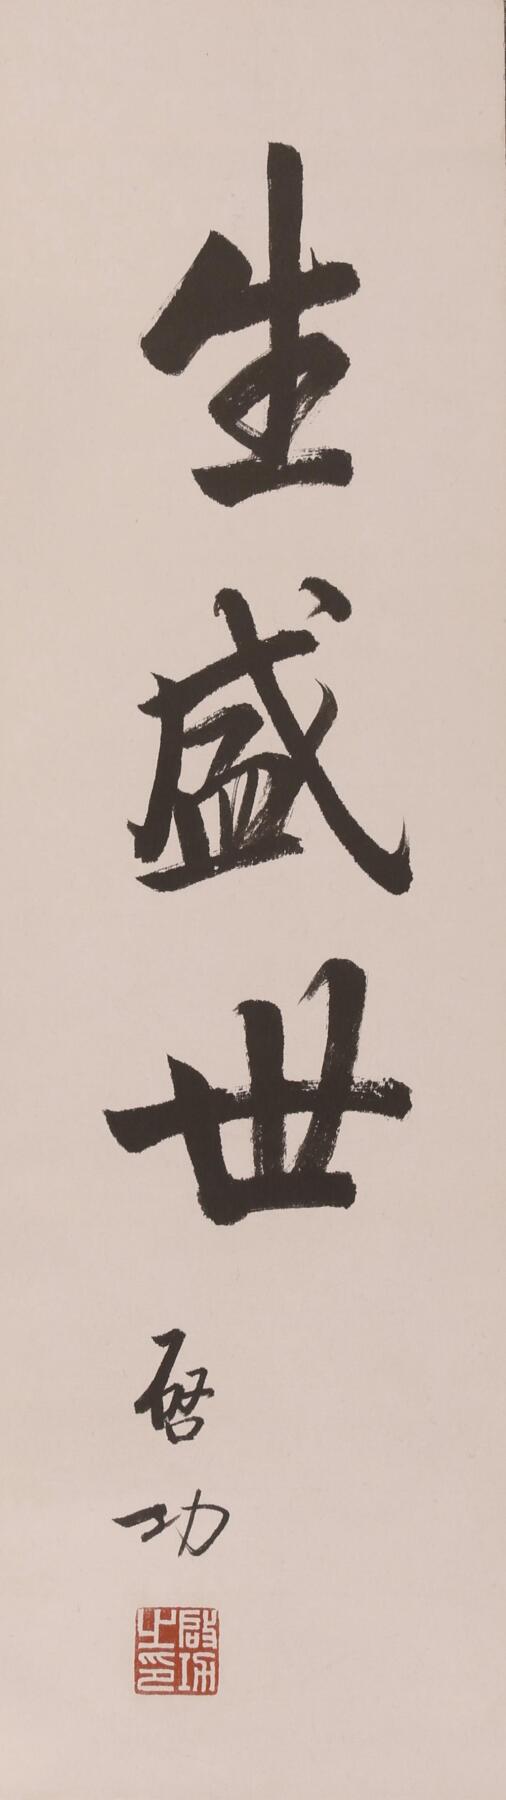 生盛世
啓功
啟功之印